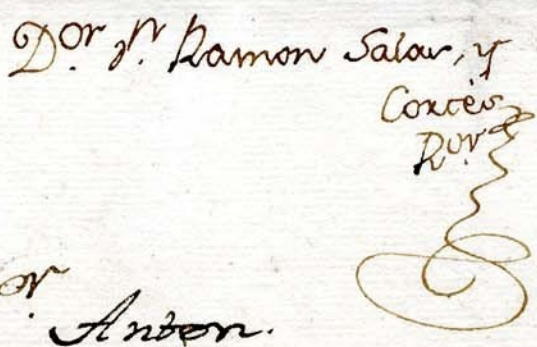 Dor. Dn. Ramon Salas, y
Cortés
Ror.
or.
Anton.